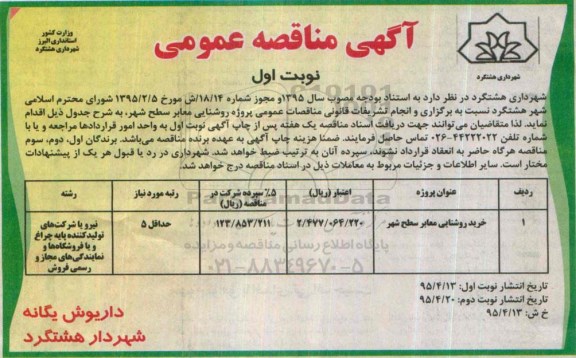 آگهی مناقصه عمومی
نوبت اول
وزارت کشور
استانداری البرز
شهرداری هشتگرد
شهرداری هشتگرد
شهرداری هشتگرد در نظر دارد به استناد بودجه مصوب سال ۱۳۹۵و مجوز شماره ۱۸/۱۴/ش مورخ ۱۳۹۵/۲/۵ شورای محترم اسلامی
شهر هشتگرد نسبت به برگزاری و انجام تشریفات قانونی مناقصات عمومی پروژه روشنایی معابر سطح شهر، به شرح جدول ذیل اقدام
نماید. لذا متقاضیان می‌توانند جهت دریافت اسناد مناقصه یک هفته پس از چاپ آگهی نوبت اول به واحد امور قراردادها مراجعه و یا با
شماره تلفن ۲۲-۴۴۲۲۲۰-۰۲۶ تماس حاصل فرمایند. ضمنا هزینه چاپ آگهی به عهده برنده مناقصه می‌باشد. برندگان اول، دوم، سوم
مناقصه هرگاه حاضر به انعقاد قرارداد نشوند، سپرده آنان به ترتیب ضبط خواهد شد. شهرداری در رد یا قبول هر یک از پیشنهادات
مختار است. سایر اطلاعات و جزئیات مربوط به معاملات ذیل در اسناد مناقصه درج خواهد شد.
ردیف عنوان پروژه اعتبار (ریال) ۵٪ سپرده شرکت در مناقصه (ریال) رتبه مورد نیاز رشته
۱ خرید روشنایی معابر سطح شهر ۲/۴۷۷/۰۶۴/۲۲۰ ۱۲۳/۸۵۳/۲۱۱ حداقل ۵ نیرو یا شرکت‌های
تولیدکننده پایه چراغ
و یا فروشگاه‌ها و
نمایندگی‌های مجاز و
رسمی فروش
پایگاه اطلاع رسانی مناقصه و مزایده
۰۲۱-۸۸۳۴۹۶۷۰-۵
تاریخ انتشار نوبت اول: ۹۵/۴/۱۳
تاریخ انتشار نوبت دوم: ۹۵/۴/۲۰
خ ش: ۹۵/۴/۱۳
داریوش یگانه
شهردار هشتگرد